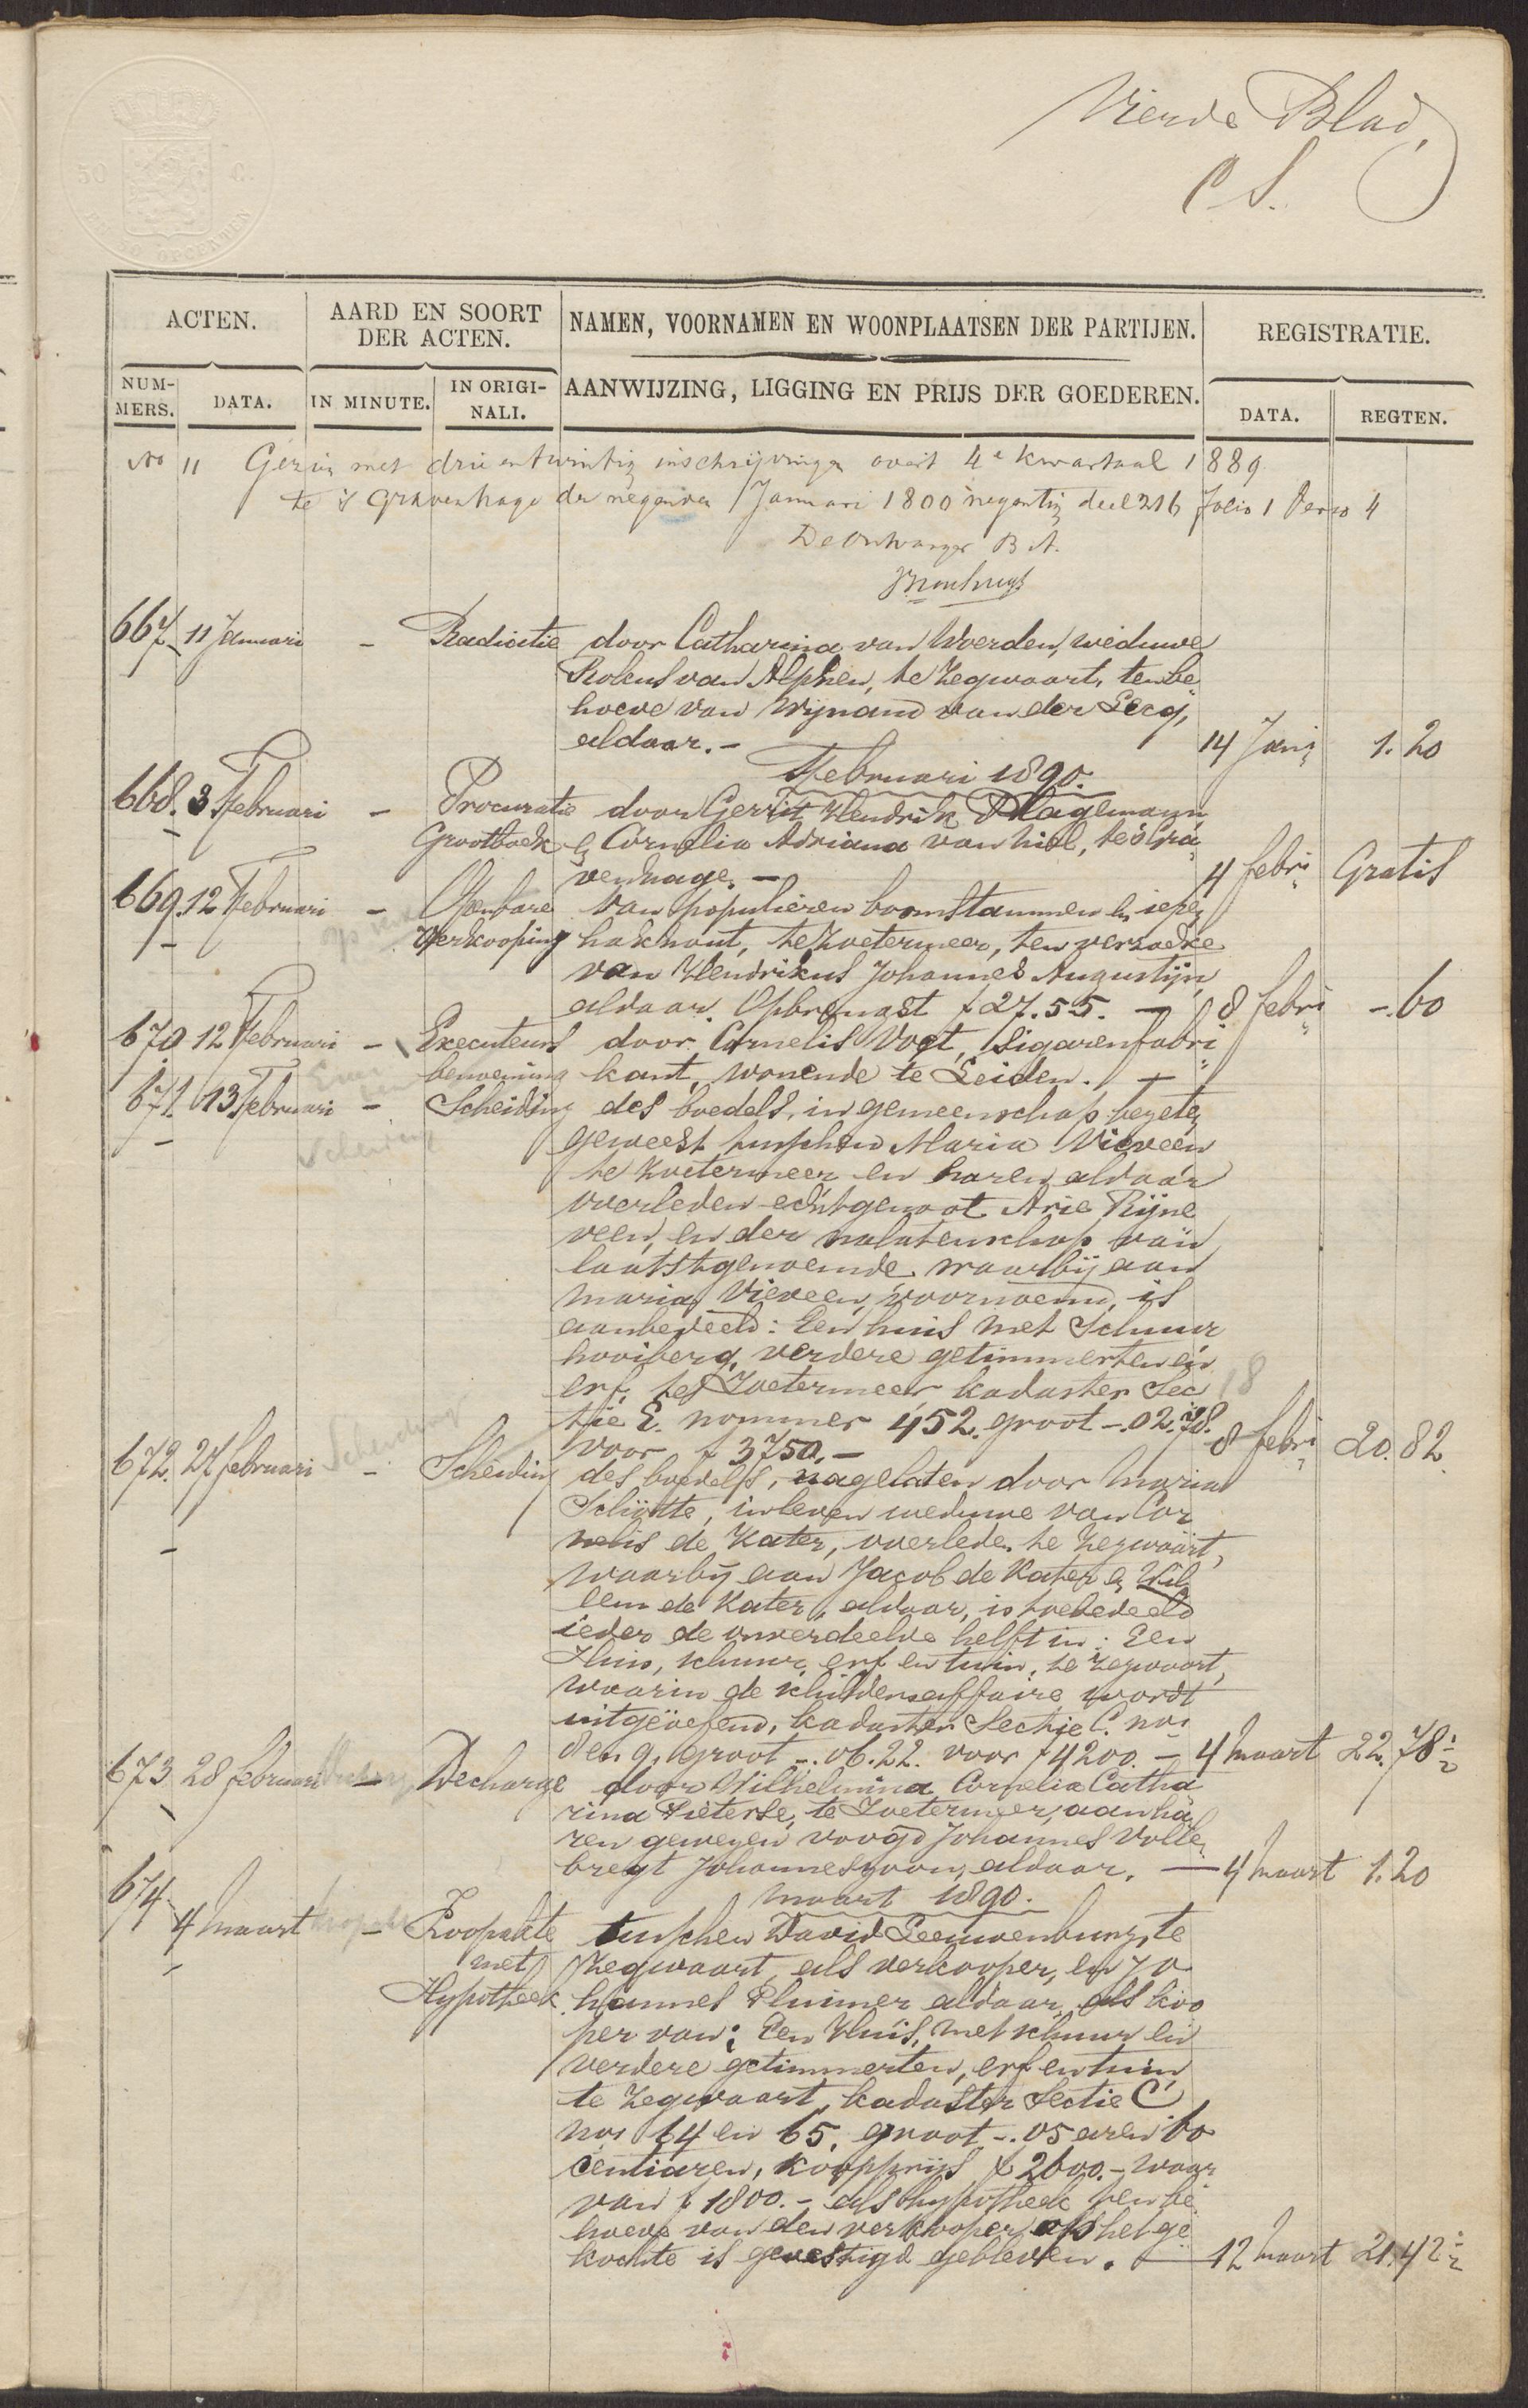 Vierde Blad,
C S.
50 C.
ACTEN.
AARD EN SOORT
DER ACTEN.
NAMEN, VOORNAMEN EN WOONPLAATSEN DER PARTIJEN.
REGISTRATIE.
NUM-
MERS.
DATA.
IN MINUTE.
IN ORIGI-
NALI.
AANWIJZING, LIGGING EN PRIJS DER GOEDEREN.
DATA.
REGTEN.
No 11 Gezien met drie en twintig inschrijvingen over 4e kwartaal 1889
te 's Gravenhage den negenden Januari 1800 negentig deel 216 folio 1 Verso 4
De Ontvanger B. A.
667 11 Januari - Radiatie door Catharina van Woerden, weduwe
Rokus van Alphen, te Zegwaart, ten be„
hoeve van Wijnand van der Lecq,
aldaar. - 14 Jan: 1. 20
Februari 1890.
668. 3 Februari - Procuratie door Gerrit Hendrik Plagemann
Grootboek & Cornelia Adriana van Niel, te 's Gra„
venhage. - 4 febri Gratis
669. 12 Februari - Openbare van populieren boomstammen & iepen
Verkooping hakhout, te Zoetermeer, ten verzoeke
van Hendrikus Johannes Augustijn,
aldaar. Opbrengst f 27.55. - 18 febri -. 60
670 12 Februari - Executeurs door Cornelis Vogt, Sigarenfabri„
benoeming kant, wonende te Leiden. -
671. 13 Februari - Scheiding des boedels, in gemeenschap bezeten
geweest tusschen Maria Vieveen
te Zoetermeer en haren aldaar
overleden echtgenoot Arie Rijne
veen, en der nalatenschap van
laatstgenoemde, waarbij aan
Maria Vieveen, voornoemd, is
aanbedeeld: Een huis met Schuur
hooiberg, verdere getimmerten en
erf, te Zoetermeer kadaster Sec
tie E. nommer 452. groot -. 02. 78.
voor f 3750. - 18 febri 20. 82
Scheiding
672. 27 februari - Scheiding des boedels, nagelaten door Maria
Schötte, in leven weduwe van Cor
nelis de Kater, overleden te Zegwaart,
waarbij aan Jacob de Kater & Wil„
lem de Kater, aldaar, is toebedeeld
ieder de onverdeelde helft in: Een
Huis, schuur, erf en tuin, te Zegwaart,
waarin de schildersaffaire wordt
uitgeoefend, kadaster Sectie C. nos
8 en 9, groot -. 06. 22. voor f 4200. - 4 Maart 22. 78½
673 28 februari - Decharge door Wilhelmina Cornelia Catha
rina Pieterse, te Zoetermeer, aan ha„
ren gewezen voogd Johannes Volle„
bregt Johanneszoon, aldaar. - 4 Maart 1. 20
Maart 1890.
674 4 Maart - Koopakte tusschen David Leeuwenburg, te
met Zegwaart, als verkooper, en Jo
Hypotheek hannes Pluimer aldaar, als koo
per van: Een Huis, met schuur en
verdere getimmerten, erf en tuin,
te Zegwaart, kadaster Sectie C
nos 64 en 65, groot -. 05 aren 60
centiaren, koopprijs f 2600. - waar
van f 1800. - als hypotheek ten be„
hoeve van den verkooper op het ge„
kochte is gevestigd gebleven. - 12 Maart 21. 42½